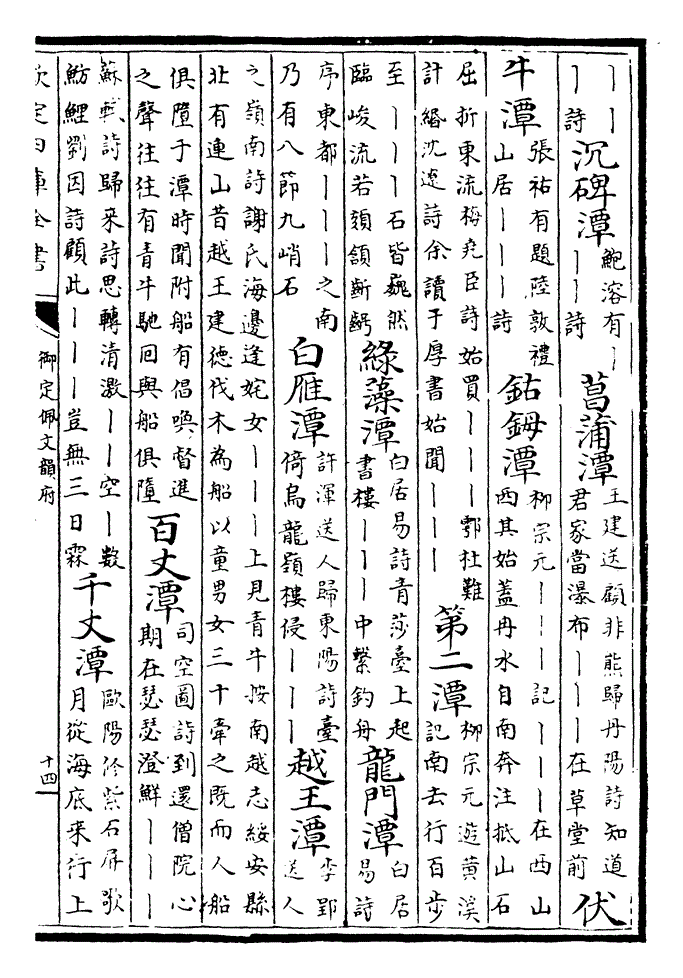 ｜｜｜詩沉碑潭鮑溶有｜｜｜詩菖蒲潭王建送顧非熊歸丹陽詩知道君家當瀑布｜｜｜在草堂前伏
牛潭張祐有題陸敦禮山居｜｜｜詩鈷鉧潭柳宗元｜｜｜記｜｜｜在西山西其始蓋冉水自南奔注抵山石
屈折東流梅堯臣詩始買｜｜｜鄠杜難計緡沈遼詩余讀子厚書始聞｜｜｜第二潭柳宗元遊黄溪記南去行百步
至｜｜｜石皆巍然臨峻流若頦頷齗齶綠藻潭白居易詩青莎臺上起書樓｜｜｜中繫釣舟龍門潭白居易詩
序東都｜｜｜之南乃有八節九峭石白雁潭許渾送人歸東陽詩臺倚烏龍嶺樓侵｜｜｜越王潭李郢送人
之嶺南詩謝氏海邊逢姹女｜｜｜上見青牛按南越志綏安縣北有連山昔越王建德伐木為船以童男女三十牽之既而人船
俱墮于潭時聞附船有倡喚督進之聲往往有青牛馳回與船俱墮百丈潭司空圖詩到還僧院心期在瑟瑟澄鮮｜｜｜
蘇軾詩歸來詩思轉清激｜｜空｜數魴鯉劉因詩顧此｜｜｜豈無三日霖千丈潭歐陽修紫石屏歌月從海底來行上
欽定四庫全書
御定佩文韻府
十四